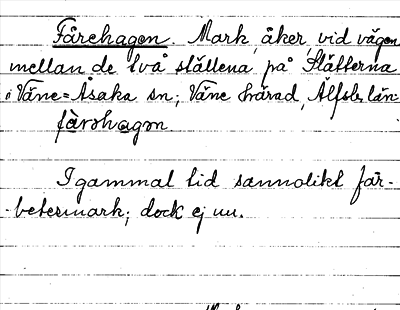 Fårehagen. Mark, åker, vid vägen
mellan de två ställena på Slätterna
i Väne-Åsaka sn; Väne härad, Älfsb. län.
fårəhagən
I gammal tid sannolikt får-
betesmark; dock ej nu.